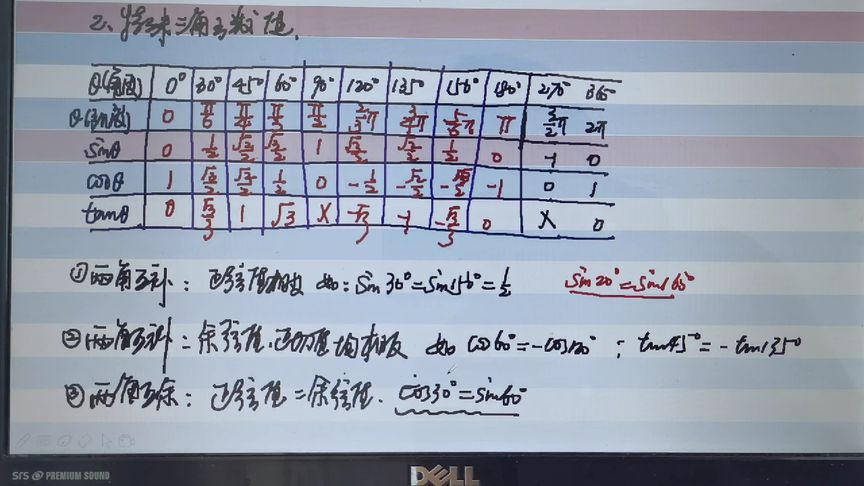 2、特殊三角函数值.
θ(角度) 0° 30° 45° 60° 90° 120° 135° 150° 180° 270° 360°
θ(弧度) 0 π/6 π/4 π/3 π/2 2/3π 3/4π 5/6π π 3/2π 2π
sinθ 0 1/2 √2/2 √3/2 1 √3/2 √2/2 1/2 0 -1 0
cosθ 1 √3/2 √2/2 1/2 0 -1/2 -√2/2 -√3/2 -1 0 1
tanθ 0 √3/3 1 √3 X -√3 -1 -√3/3 0 X 0
①两角互补：正弦值相等 如：sin30°=sin150°=1/2 sin20°=sin160°
②两角互补：余弦值.正切值均相反 如 cos60°=-cos120°；tan45°=-tan135°
③两角互余：正弦值=余弦值. cos30°=sin60°
SRS PREMIUM SOUND
DELL